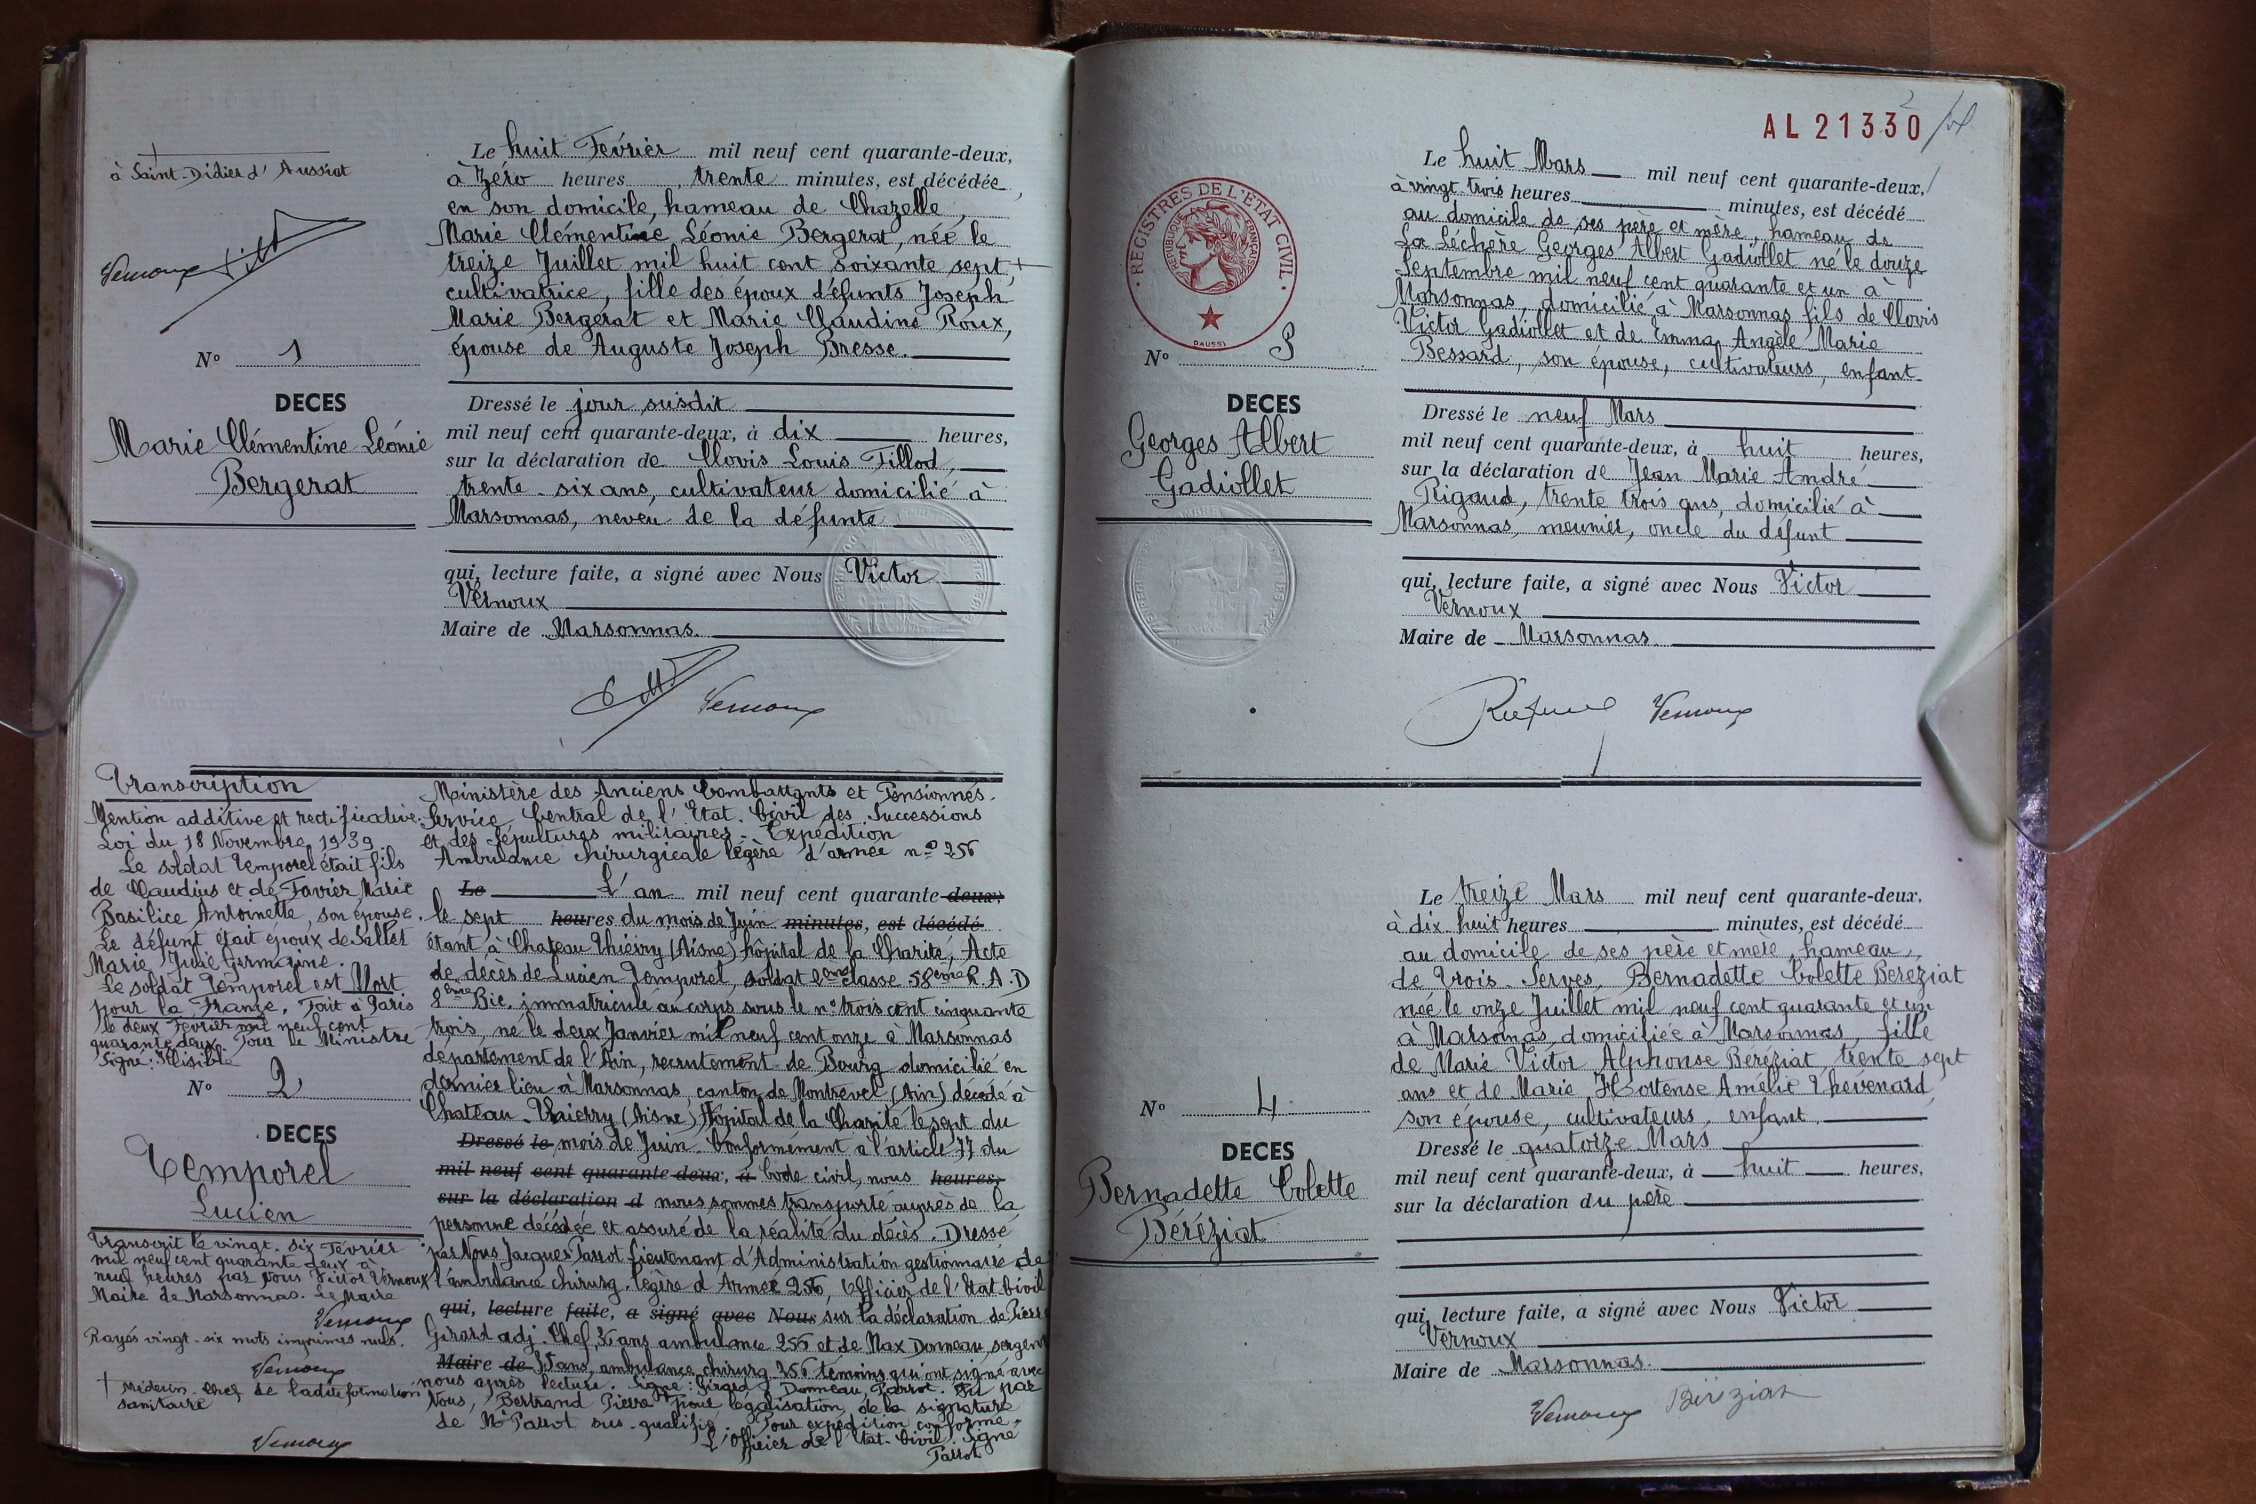 à Saint-Didier d'Aussiat
Vernoux
N° 1
DECES
Marie Clémentine Léonie
Bergerat
Le huit Février mil neuf cent quarante-deux,
à zéro heures trente minutes, est décédée
en son domicile, hameau de Chazelle,
Marie Clémentine Léonie Bergerat, née le
treize Juillet mil huit cent soixante sept, +
cultivatrice, fille des époux défunts Joseph
Marie Bergerat et Marie Claudine Roux,
épouse de Auguste Joseph Bresse.
Dressé le jour susdit
mil neuf cent quarante-deux, à dix heures,
sur la déclaration de Clovis Louis Tillod,
trente-six ans, cultivateur domicilié à
Marsonnas, neveu de la défunte
qui, lecture faite, a signé avec Nous Victor
Vernoux
Maire de Marsonnas.
Vernoux
Transcription
Mention additive et rectificative.
Loi du 18 Novembre 1939.
Le soldat Temporel était fils
de Claudius et de Favier Marie
Basilice Antoinette, son épouse.
Le défunt était époux de Sallet
Marie Julie Germaine.
Le soldat Temporel est Mort
pour la France. Fait à Paris
le deux Février mil neuf cent
quarante deux. Pour le Ministre
Signé: Illisible
N° 2
DECES
Temporel
Lucien
Transcrit le vingt-six Février
mil neuf cent quarante deux à
neuf heures par Nous Victor Vernoux
Maire de Marsonnas. Le Maire
Vernoux
Rayés vingt-six mots imprimés nuls.
Vernoux
+ Médecin Chef de ladite formation
sanitaire
Vernoux
Ministère des Anciens Combattants et Pensionnés.
Service Central de l'Etat-Civil des Successions
et des Sépultures militaires - Expédition
Ambulance chirurgicale légère d'armée n° 256
Le L'an mil neuf cent quarante-deux,
le sept heures du mois de Juin minutes, est décédé
étant à Chateau Thierry (Aisne) hôpital de la Charité, Acte
de décès de Lucien Temporel, soldat 2ème classe 58ème R.A.D
8ème Bie, immatriculé au corps sous le n° trois cent cinquante
trois, né le deux Janvier mil neuf cent onze à Marsonnas
département de l'Ain, recrutement de Bourg domicilié en
dernier lieu à Marsonnas, canton de Montrevel (Ain) décédé à
Chateau-Thierry (Aisne) Hôpital de la Charité le sept du
Dressé le mois de Juin. Conformément à l'article 77 du
mil neuf cent quarante-deux, à Code civil, nous heures,
sur la déclaration d nous sommes transporté auprès de la
personne décédée et assuré de la réalité du décès. Dressé
par Nous Jacques Parrot Lieutenant d'Administration gestionnaire de
l'ambulance chirurg. légère d'Armée 256, Officier de l'Etat-Civil
qui, lecture faite, a signé avec Nous sur la déclaration de Pierre
Girard adj-Chef, 36 ans, ambulance 256 et de Max Donneau, sergent
Maire de 35 ans, ambulance chirurg. 256 témoins qui ont signé avec
nous après lecture. Signé: Girard, Donneau, Parrot. Vu par
Nous, Bertrand Pierre + pour légalisation de la signature
de Mr Parrot sus-qualifié. Pour expédition conforme.
L'Officier de l'Etat-Civil. Signé
Parrot
2
AL 21330
REGISTRES DE L'ETAT CIVIL
REPUBLIQUE FRANÇAISE
DAUSSY
N° 3
DECES
Georges Albert
Gadiollet
Le huit Mars mil neuf cent quarante-deux,
à vingt trois heures minutes, est décédé
au domicile de ses père et mère, hameau de
La Léchère Georges Albert Gadiollet né le douze
Septembre mil neuf cent quarante et un à
Marsonnas, domicilié à Marsonnas fils de Clovis
Victor Gadiollet et de Emma Angèle Marie
Bessard, son épouse, cultivateurs, enfant
Dressé le neuf Mars
mil neuf cent quarante-deux, à huit heures,
sur la déclaration de Jean Marie André
Rigaud, trente trois ans, domicilié à
Marsonnas, meunier, oncle du défunt
qui, lecture faite, a signé avec Nous Victor
Vernoux
Maire de Marsonnas
Vernoux
N° 4
DECES
Bernadette Colette
Béréziat
Le treize Mars mil neuf cent quarante-deux,
à dix huit heures minutes, est décédé
au domicile de ses père et mère, hameau
de Trois-Serves, Bernadette Colette Béréziat
née le onze Juillet mil neuf cent quarante et un
à Marsonnas, domiciliée à Marsonnas, fille
de Marie Victor Alphonse Béréziat, trente sept
ans et de Marie Hortense Amélie Thévenard,
son épouse, cultivateurs, enfant
Dressé le quatorze Mars
mil neuf cent quarante-deux, à huit heures,
sur la déclaration du père
qui, lecture faite, a signé avec Nous Victor
Vernoux
Maire de Marsonnas.
Vernoux Béréziat